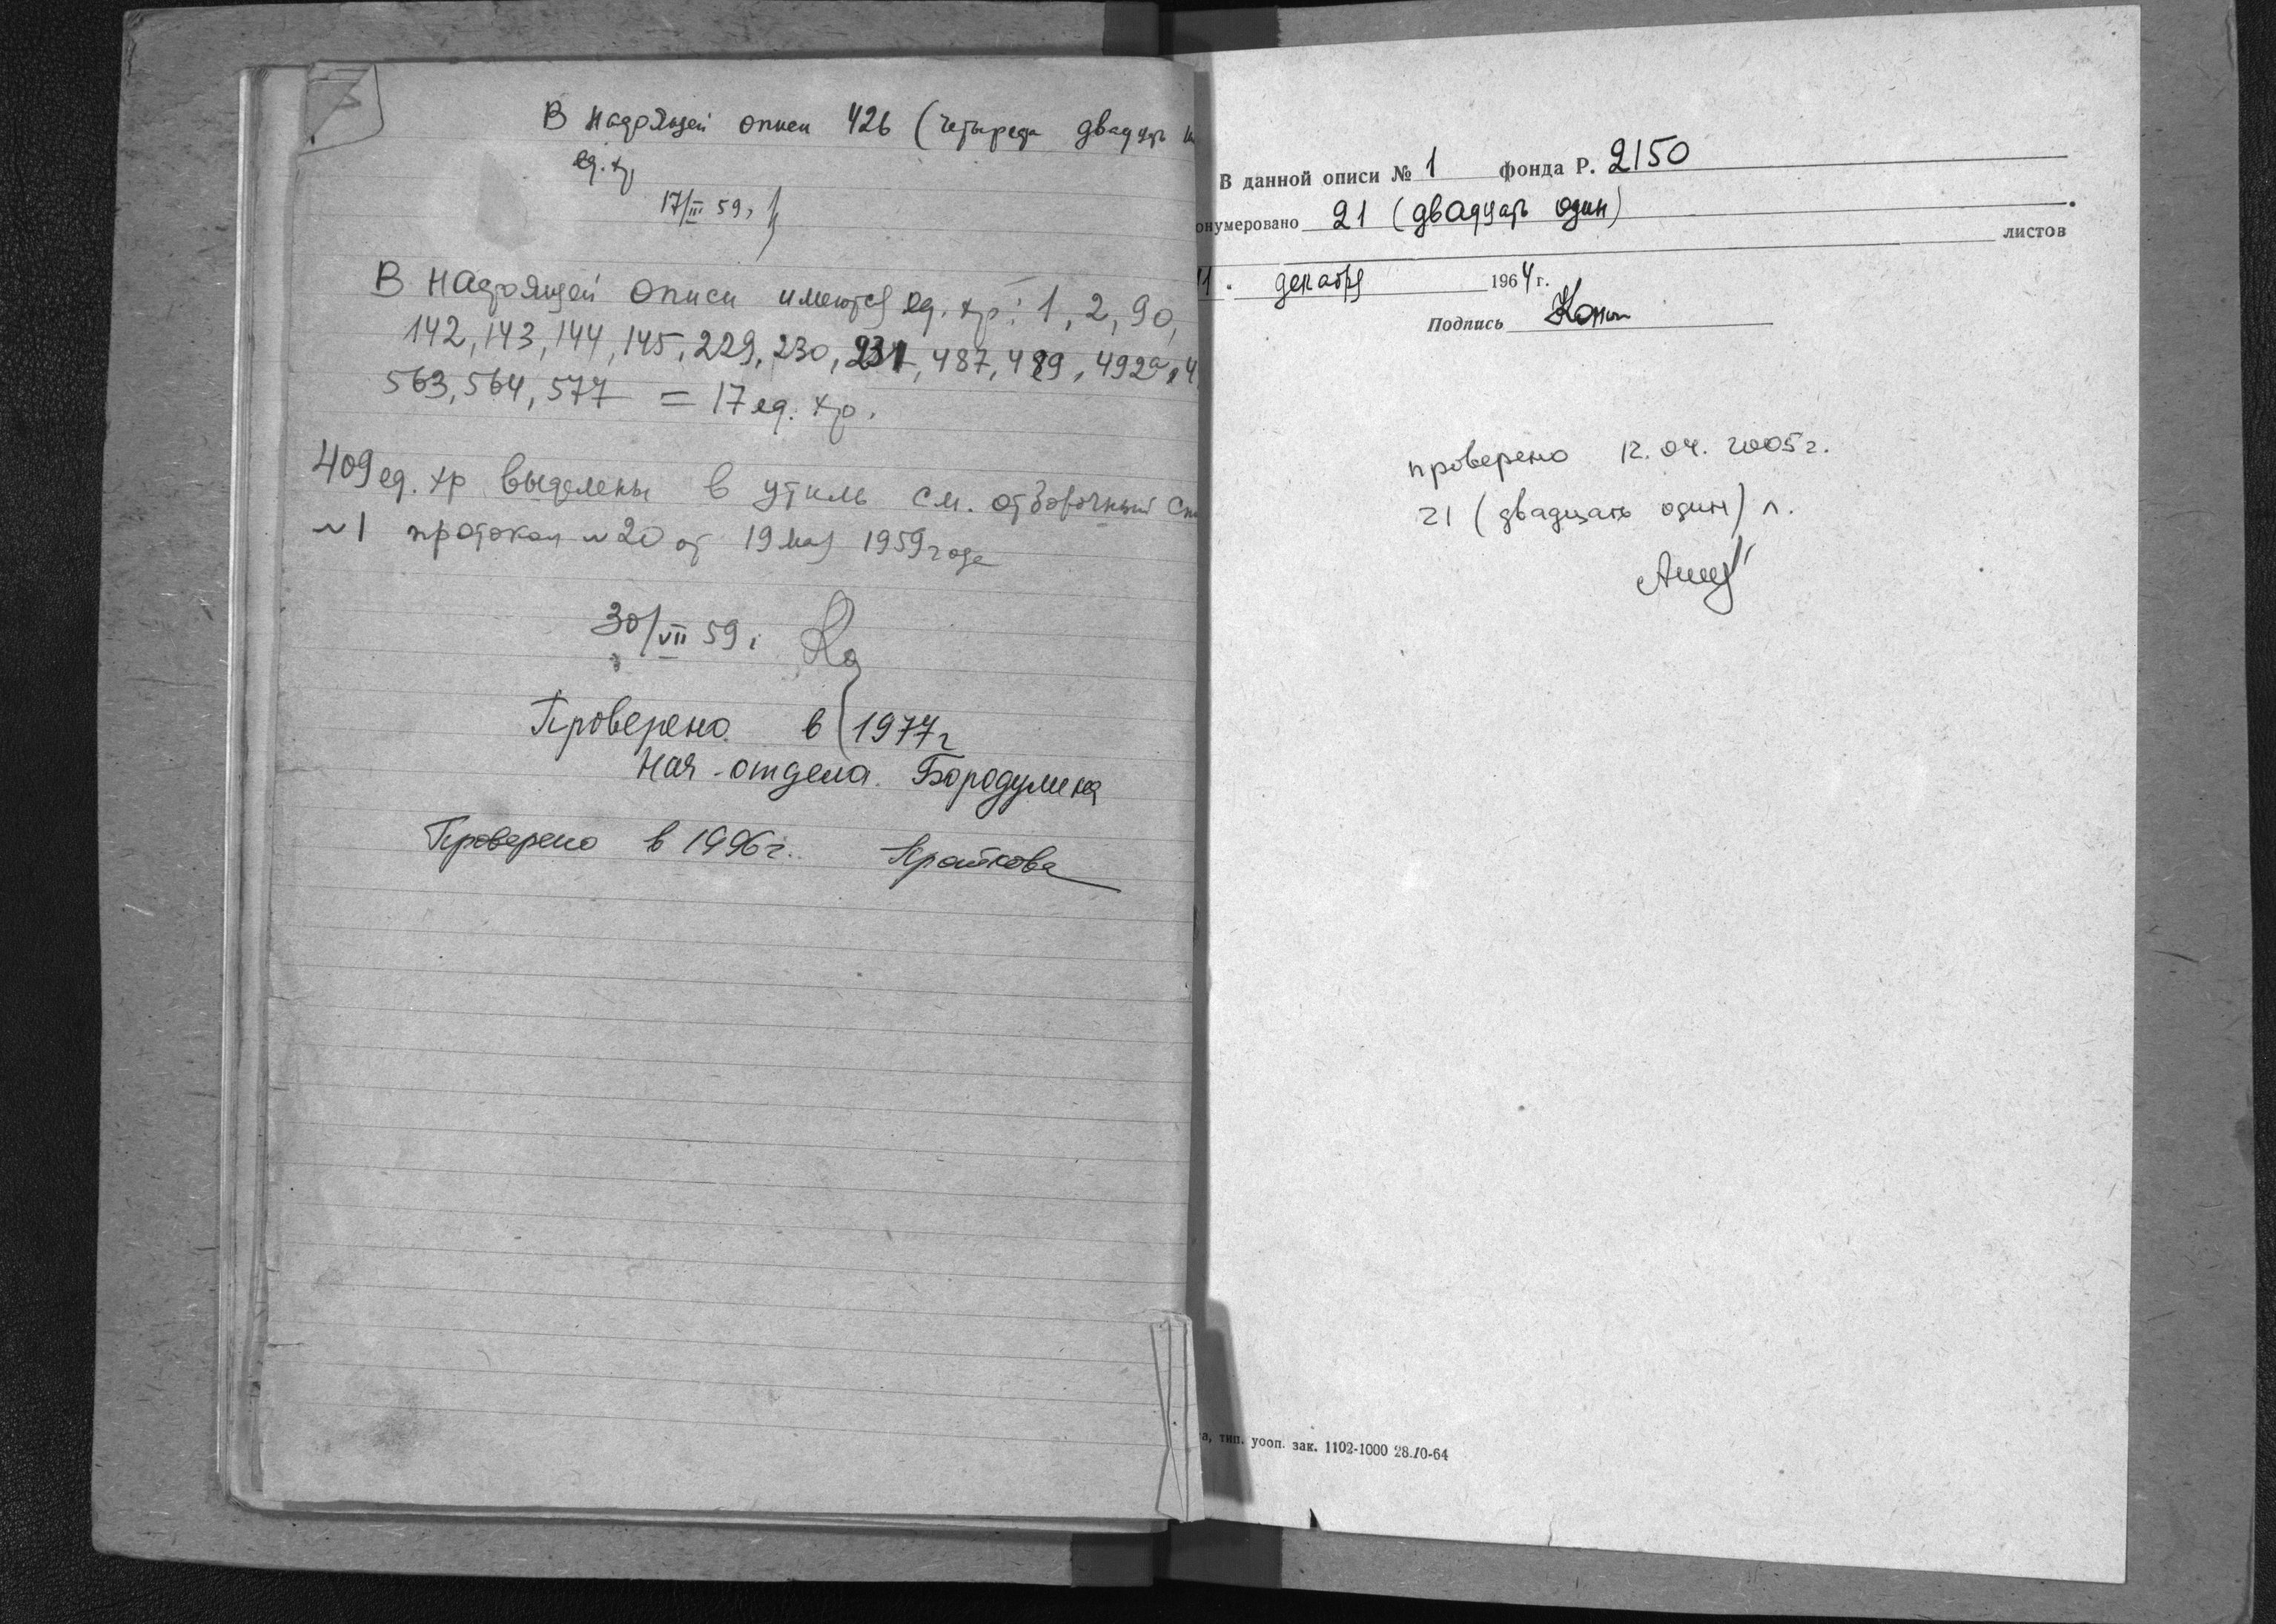 В настоящей описи 426 (четыреста двадцать
ед. хр.
17/III 59 г.
В настоящей описи имеются ед. хр: 1, 2, 90,
142, 143, 144, 145, 229, 230, 231, 487, 489, 492а, 4
563, 564, 577 = 17 ед. хр.
409 ед. хр выделены в утиль см. отборочный
№1 протокол №20 от 19 мая 1959 года
30/VII 59 г.
Проверено в 1977 г
Нач. отдела Бородулина
Проверено в 1996 г.
В данной описи № 1 фонда Р. 2150
онумеровано 21 (двадцать один)
листов
декабря 1964 г.
Подпись
проверено 12.04.2005 г.
21 (двадцать один) л.
а, тип. уооп. зак. 1102-1000 28.10-64